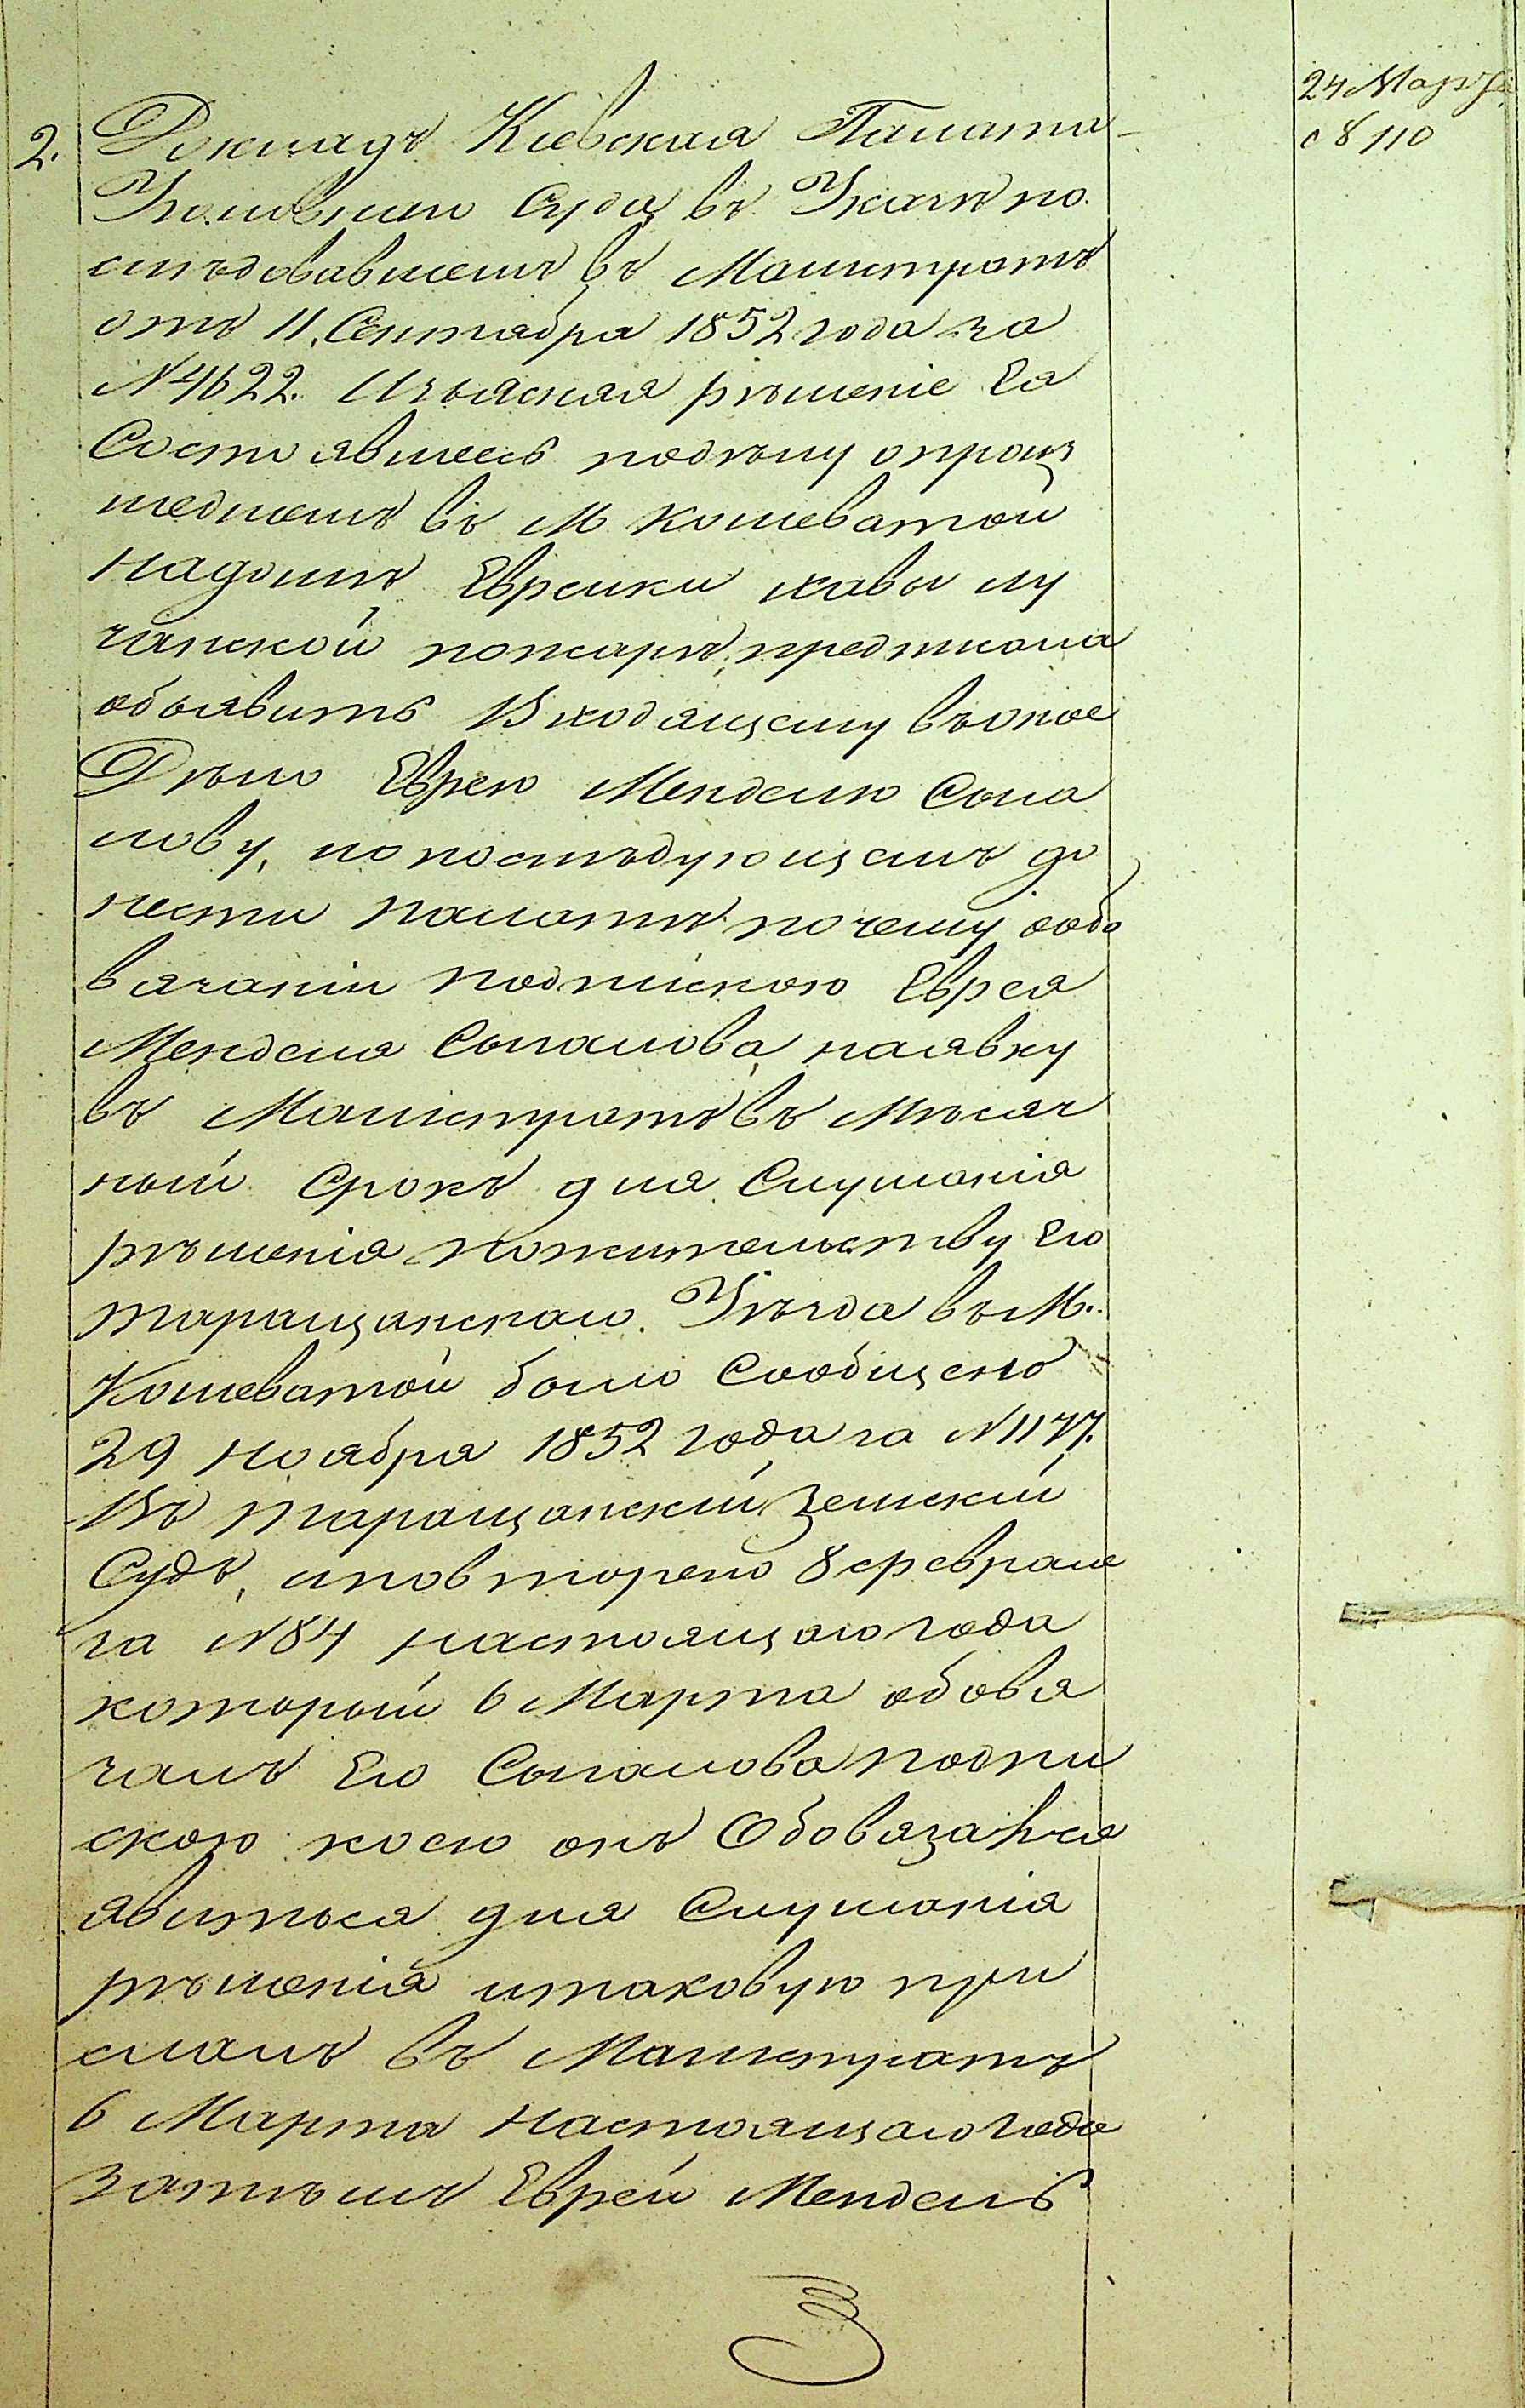 24 Марта
№ 110
2. Докладъ Кіевская Палата
Уголовнаго Суда, въ Указѣ по
слѣдовавшемъ въ Магистратъ
отъ 11. Сентября 1852 года за
№ 4622. Изъясняя рѣшеніе Ея
Состоявшеесь подѣлу опроиз
шедшемъ въ М Кошеватой
надомъ Еврейки хавы лу
чанской пожарѣ, предписала
объявить Входящему въоное
Дѣло Еврею Менделю Сома
лову, ипопослѣдующемъ до
нести палатѣ. почему ообо
вязаніи подпискою Еврея
Менделя Сомалова, наявку
въ Магистратъ въ Мѣсяч
ный Срокъ для Слушанія
рѣшенія пожительству Его
таращанскаго. Уѣзда въМ.
Кошеватой было Сообщено
29 ноября 1852 года за № 1177.
Въ таращанскій Земскій
Судъ, иповторено 8 февраля
за № 84 настоящаго года
который 6 Марта обовя
залъ Его Сомалова подпи
скою коею онъ Обовязался
явиться для Слушанія
рѣшенія итаковую при
слалъ въ Магистратъ
6 Марта настоящаго года
Затѣмъ Еврей Мендель